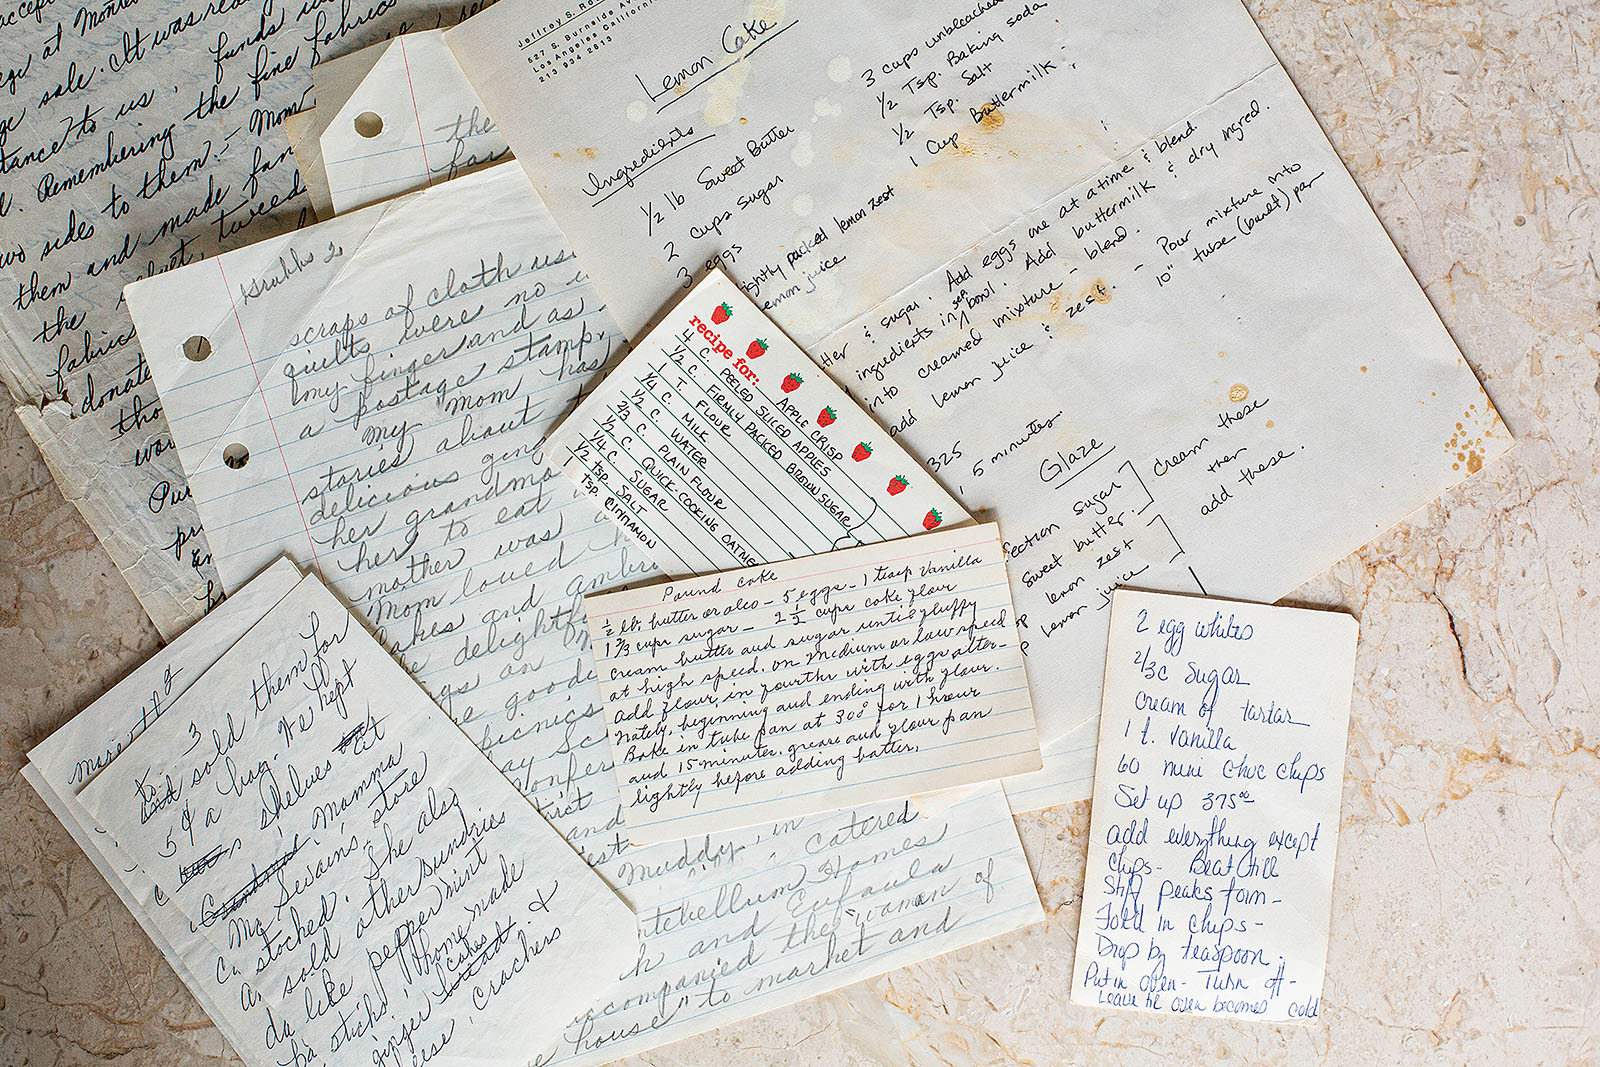 accept
ege at Monte
ge sale. It was rea
tance to us, funds
l. Remembering the fine fabrics
two sides to them.- Mom
them and made fan
the velvet, tweed
fabrics
donate
tho
wor
Pur
pr
the
far
Jeffrey S. Ro
527 S. Burnside Av
Los Angeles California
213 934 2613
Lemon Cake
Ingredients
1/2 lb Sweet Butter
2 cups sugar
3 eggs
ightly packed lemon zest
lemon juice
3 cups unbleached
1/2 Tsp. Baking soda
1/2 Tsp. Salt
1 Cup Buttermilk
tter & sugar. Add eggs one at a time & blend.
ingredients in sep bowl. Add buttermilk & dry ingred.
into creamed mixture - blend.
add lemon juice & zest. - Pour mixture into
10" tube (bundt) pan
325
5 minutes
Glaze
ection sugar
sweet butter.
lemon zest
lemon juice
cream these
then
add these.
2
scraps of cloth use
quilts were no
my finger and as
a postage stamp.
My Mom has
stories about
delicious ging
her grandmo
her to eat
mother was
Mom loved
akes and ambr
he delightf
ngs on
e goodi
picnics
ay Sc
onfer
trict and
est
Muddy, in
catered
ntebellum Homes
h and Eufaula
accompanied the "woman of
e house" to market and
recipe for: APPLE CRISP
4 C. PEELED SLICED APPLES
1/2 C. FIRMLY PACKED BROWN SUGAR
1 T. FLOUR
1/4 C. MILK
1/2 C. WATER
2/3 C. PLAIN FLOUR
1/2 C. QUICK-COOKING OATME
1/4 C. SUGAR
1/2 tsp. SALT
1 tsp. CINNAMON
Pound Cake
1/2 lb. butter or oleo - 5 eggs - 1 teasp vanilla
1 2/3 cups sugar - 2 1/2 cups cake flour
cream butter and sugar until fluffy
at high speed. on medium or low speed
add flour in fourths with eggs alter-
nately, beginning and ending with flour.
Bake in tube pan at 300° for 1 hour
and 15 minutes. grease and flour pan
lightly before adding batter.
3
to
and sold them for
5¢ a bag. We kept
shelves at
Grandma's Mamma
Mc Swain's store
stocked. She also
sold other sundries
like peppermint
sticks, home made
ginger cakes &
cheese, crackers
2 egg whites
2/3c sugar
cream of tartar
1 t. vanilla
60 mini choc chips
Set up 375°°
add everything except
chips - Beat till
Stiff peaks form -
Fold in chips -
Drop by teaspoon.
Put in oven - Turn off -
Leave til oven becomes cold